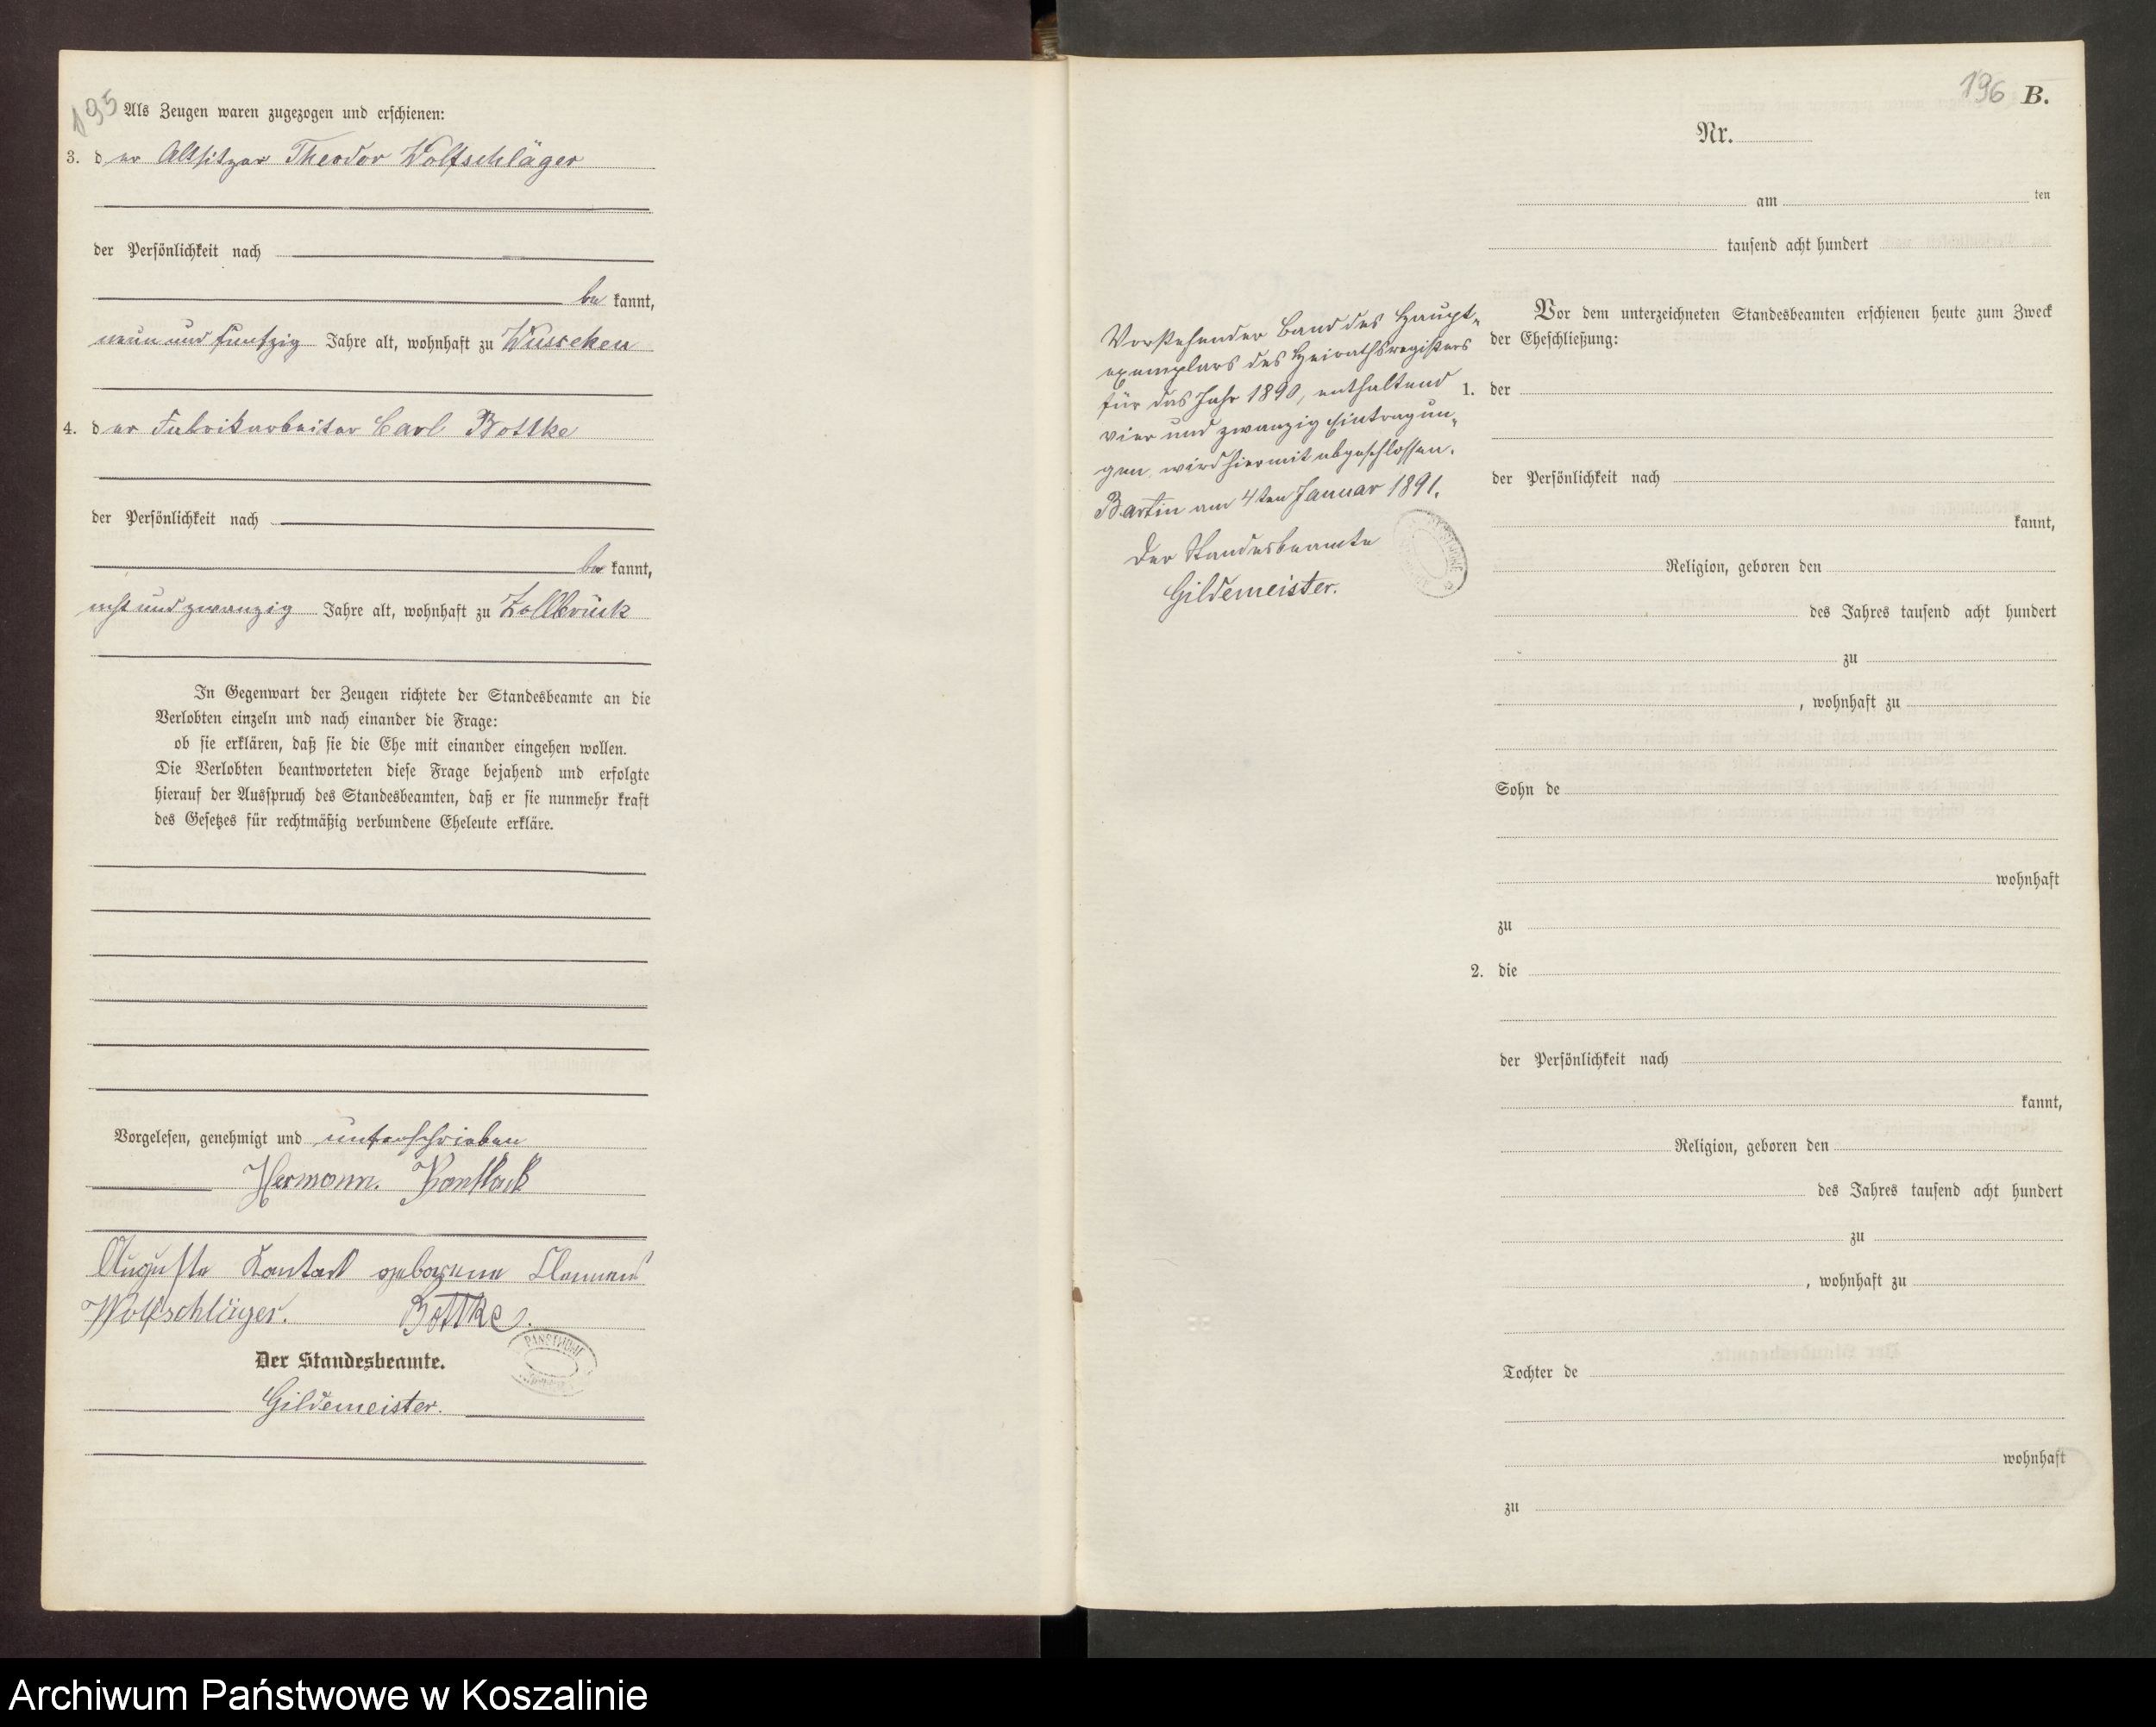 195
Als Zeugen waren zugezogen und erschienen:
3. der Altsitzer Theodor Wolfschläger
der Persönlichkeit nach
be kannt,
neun und funfzig Jahre alt, wohnhaft zu Wusseken
4. der Fabrikarbeiter Carl Bottke
der Persönlichkeit nach
be kannt,
acht und zwanzig Jahre alt, wohnhaft zu Zollbrück
In Gegenwart der Zeugen richtete der Standesbeamte an die
Verlobten einzeln und nach einander die Frage:
ob sie erklären, daß sie die Ehe mit einander eingehen wollen.
Die Verlobten beantworteten diese Frage bejahend und erfolgte
hierauf der Ausspruch des Standesbeamten, daß er sie nunmehr kraft
des Gesetzes für rechtmäßig verbundene Eheleute erkläre.
Vorgelesen, genehmigt und unterschrieben
Hermann.
Auguste geborene
Wolfschläger. Bottke.
Der Standesbeamte.
Gildemeister.
196 B.
Nr.
am ten
tausend acht hundert
Vorstehender Band des Haupt-
exemplars des Heirathsregisters
für das Jahr 1890, enthaltend
vier und zwanzig Eintragun-
gen, wird hiermit abgeschlossen.
Bartin am 4ten Januar 1891.
Der Standesbeamte
Gildemeister.
Vor dem unterzeichneten Standesbeamten erschienen heute zum Zweck
der Eheschließung:
1. der
der Persönlichkeit nach
kannt,
Religion, geboren den
des Jahres tausend acht hundert
zu
, wohnhaft zu
Sohn de
wohnhaft
zu
2. die
der Persönlichkeit nach
kannt,
Religion, geboren den
des Jahres tausend acht hundert
zu
, wohnhaft zu
Tochter de
wohnhaft
zu
Archiwum Państwowe w Koszalinie